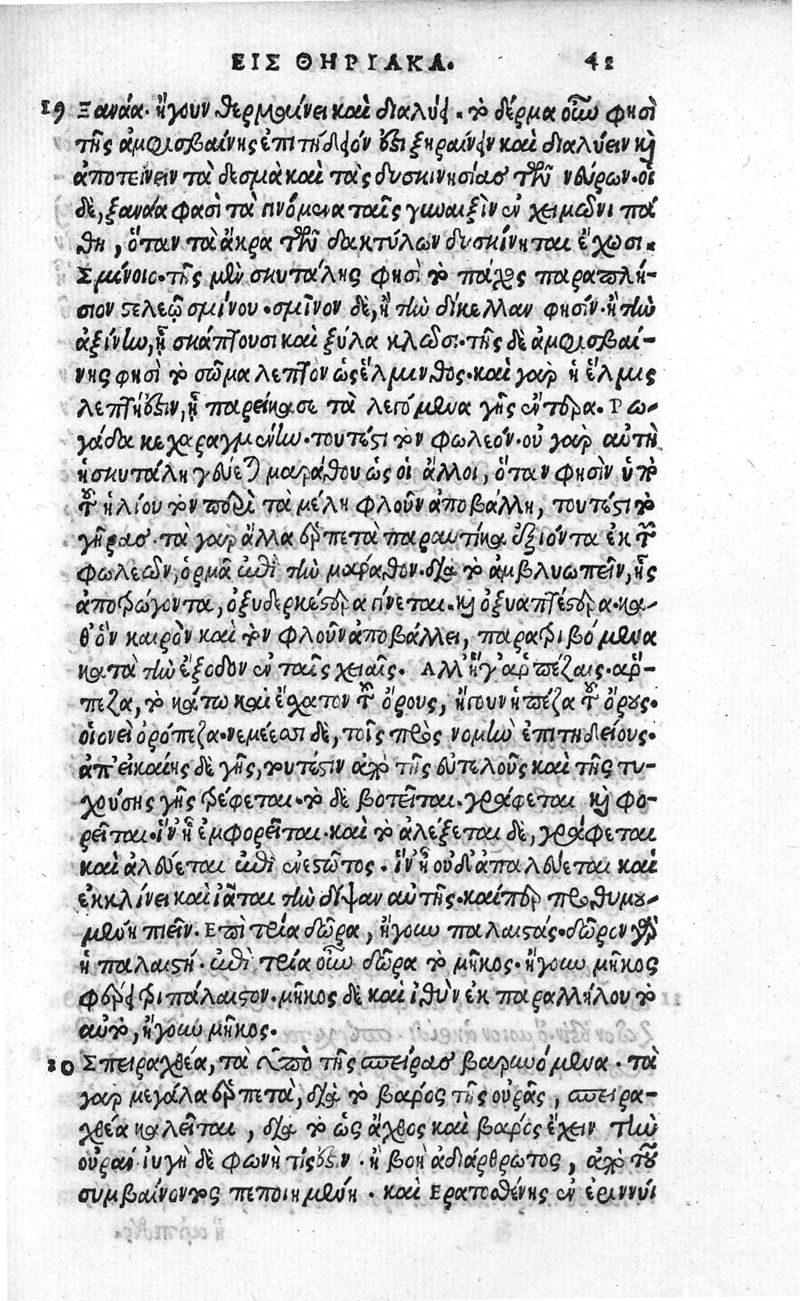 ΕΙΣ ΘΗΡΙΑΚΑ. 42
19 Ξανάα· ἤγουν θερμαίνει καὶ διαλύει. τὸ δέρμα οὖν φησὶ
τῆς ἀμφισβαίνης ἐπιτήδειόν ἐστι ξηραίνειν καὶ διαλύειν καὶ
ἀποτείνειν τὰ δεσμὰ καὶ τὰς δυσκινησίας τῶν νεύρων. οἱ
δὲ, ξανάα φασὶ τὰ γινόμενα ταῖς γυναιξὶν ἐν χειμῶνι πά
θη, ὅταν τὰ ἄκρα τῶν δακτύλων δυσκίνητα ἔχωσι.
Σμίνοιο· τῆς μὲν σκυτάλης φησὶ τὸ πάχος παραπλή-
σιον στελεῷ σμίνου. σμῖνον δὲ, ἢ τὴν δίκελλαν φησίν. ἢ τὴν
ἀξίνην, ᾗ σκάπτουσι καὶ ξύλα κλῶσι. τῆς δὲ ἀμφισβαί-
νης φησὶ τὸ σῶμα λεπτὸν ὡς ἕλμινθος. καὶ γὰρ ἡ ἕλμις
λεπτή ἐστιν, ᾗ παρείκασε τὰ λεγόμενα γῆς ἔντερα. Ρω-
γάδα κεχαραγμένην. τουτέστι τὸν φωλεόν. οὐ γὰρ αὐτὴ
ἡ σκυτάλη γεύεται μαράθου ὡς οἱ ἄλλοι, ὅταν φησὶν ὑπὸ
τοῦ ἡλίου τὸν περὶ τὰ μέλη φλοῦν ἀποβάλλη, τουτέστι τὸ
γῆρας. τὰ γὰρ ἄλλα ἑρπετὰ παραυτίκα ἐξιόντα ἐκ τοῦ
φωλεῶν, ὁρμᾶ ἐπὶ τὴν μάραθον. διὰ τὸ ἀμβλυωπεῖν, ἧς
ἀποτρώγοντα, ὀξυδερκέστερα γίνεται. καὶ ὀξυαπτέστερα. κα-
θ᾽ ὃν καιρὸν καὶ τὸν φλοῦν ἀποβάλλει, παρατριβόμενα
κατὰ τὴν ἔξοδον ἐν ταῖς χειαῖς. Αλλ᾽ ἥγ᾽ ἁρπέζαις. ἅρ-
πεζα, τὸ κάτω καὶ ἔσχατον τοῦ ὄρους, ἤγουν ἡ πέζα τοῦ ὄρους.
οἱονεὶ ὀρόπεζα. νεμέεσσι δὲ, τοῖς πρὸς νομὴν ἐπιτηδείους.
ἀπ᾽ εἰκαίης δὲ γῆς, τουτέστιν ἀπὸ τῆς εὐτελοῦς καὶ τῆς τυ-
χούσης γῆς τρέφεται. τὸ δὲ βοτεῖται. γράφεται καὶ φο-
ρεῖται. ἵν᾽ ᾖ ἐμφορεῖται. καὶ τὸ ἀλέξεται δὲ, γράφεται
καὶ ἀλθύεται ἐπὶ ἐνεστῶτος. ἵν᾽ ᾖ οὐδ᾽ ἀπαλθύεται καὶ
ἐκκλίνει καὶ ἰᾶται τὴν δίψαν αὐτῆς. καίπερ προθυμου-
μένη πιεῖν. Επὶ τρία δῶρα, ἤγουν παλαιστάς. δῶρον γὰρ
ἡ παλαιστή. ἐπὶ τρία οὖν δῶρα τὸ μῆκος. ἤγουν μῆκος
φέρει τριπάλαιστον. μῆκος δὲ καὶ ἰθὺν ἐκ παραλλήλου τὸ
αὐτό, ἤγουν μῆκος.
20 Σπειραχθέα, τὰ ὑπὸ τῆς σπείρας βαρυνόμενα. τὰ
γὰρ μεγάλα ἑρπετὰ, διὰ τὸ βάρος τῆς οὐρᾶς, σπειρα-
χθέα καλεῖται, διὰ τὸ ὡς ἄχθος καὶ βάρος ἔχειν τὴν
οὐράν. ἰυγὴ δὲ φωνή τίς ἐστιν. ἢ βοὴ ἀδιάρθρωτος, ἀπὸ τοῦ
συμβαίνοντος πεποιημένη. καὶ Ερατοσθένης ἐν ἐριννύι